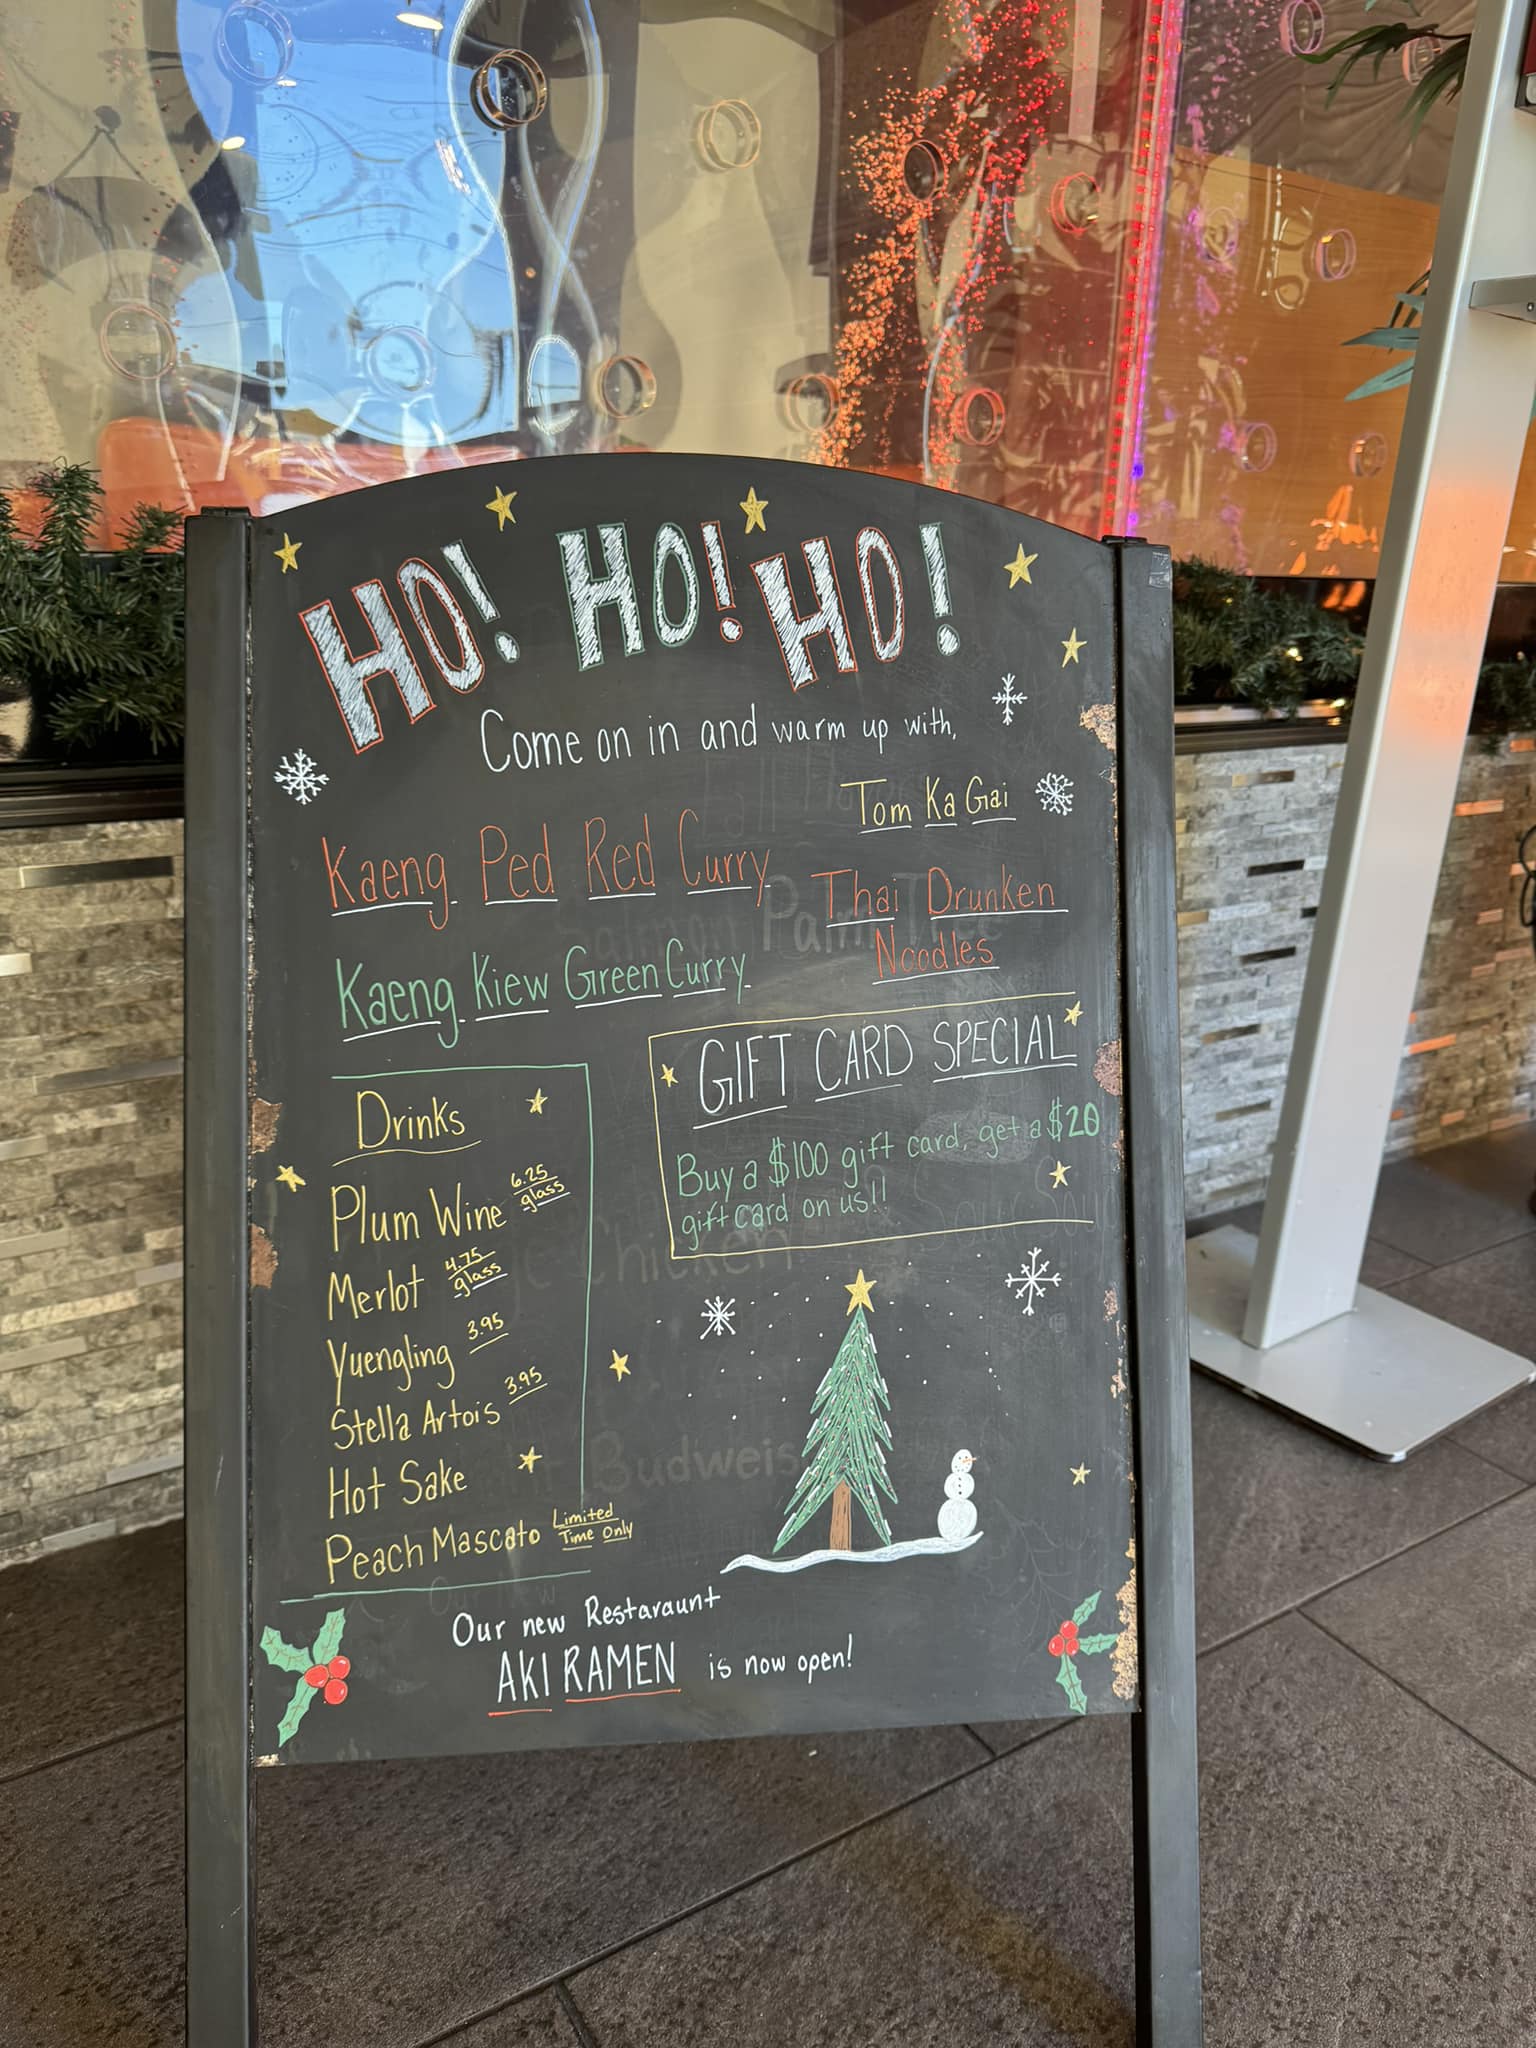 HO! HO! HO!
Come on in and warm up with,
Tom Ka Gai
Kaeng Ped Red Curry
Thai Drunken
Noodles
Kaeng Kiew Green Curry
GIFT CARD SPECIAL
Buy a $100 gift card, get a $20
gift card on us!!
Drinks
Plum Wine 6.25
glass
Merlot 4.75
glass
Yuengling 3.95
Stella Artois 3.95
Hot Sake
Peach Mascato Limited
Time Only
Our new Restaraunt
AKI RAMEN is now open!